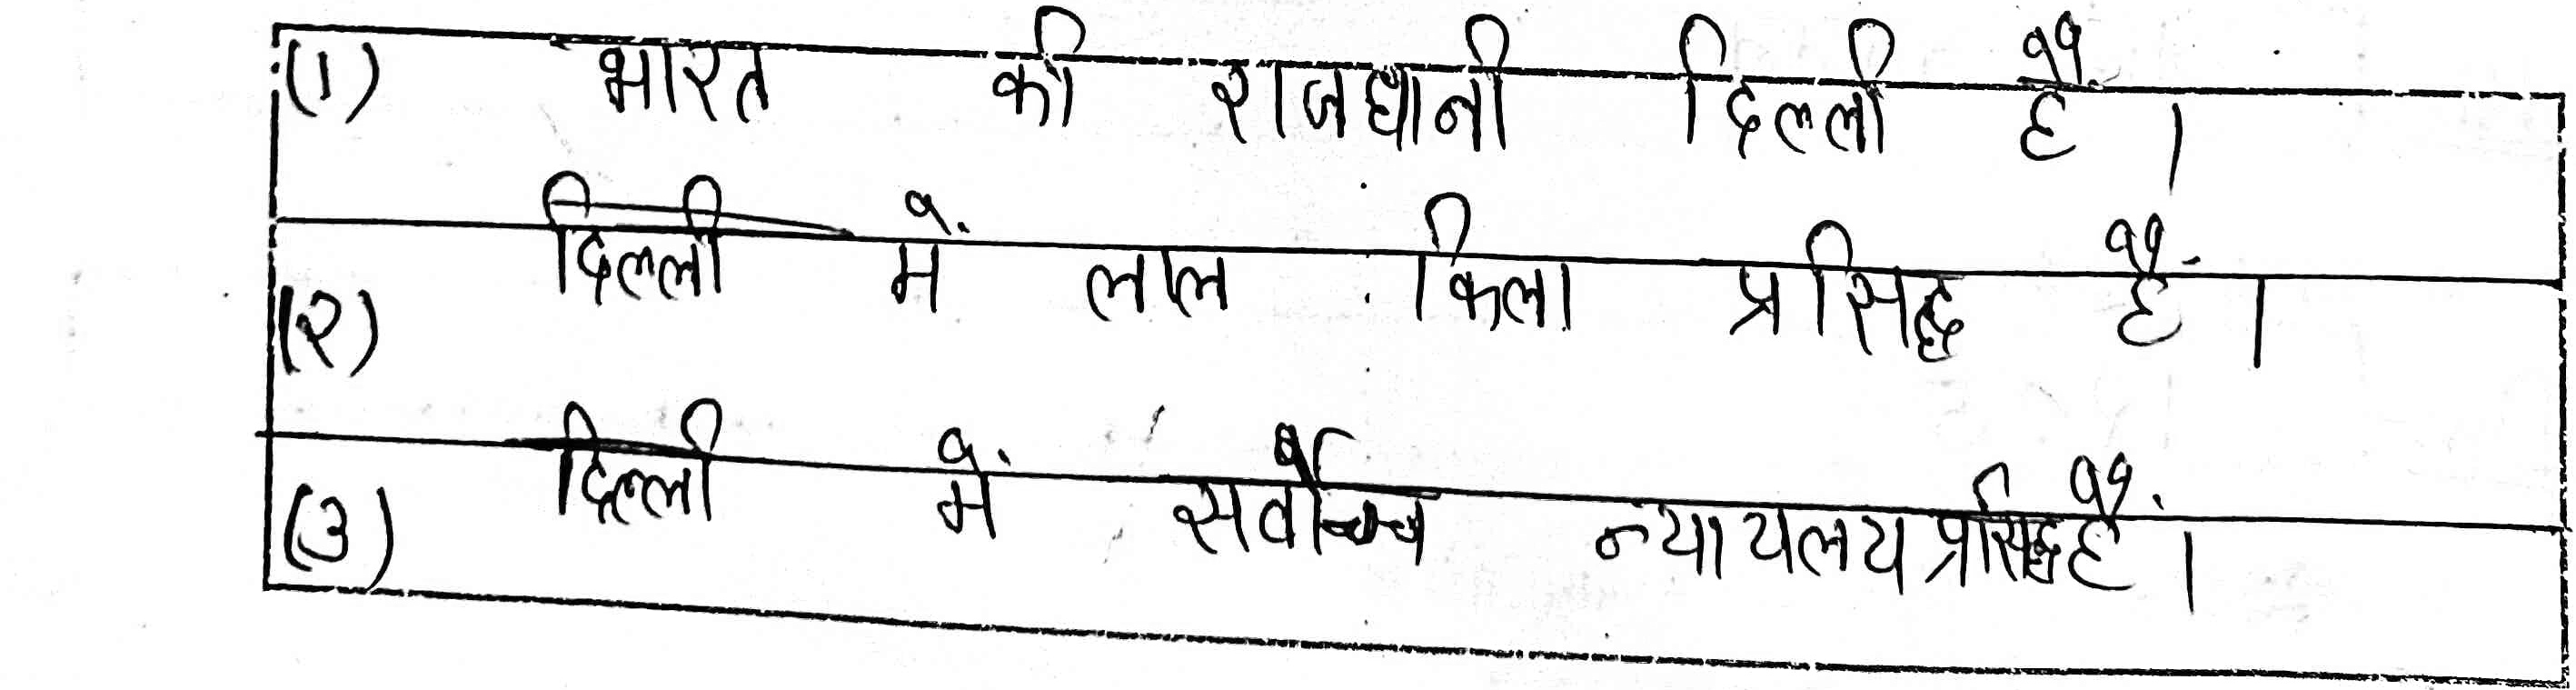 (1) भारत की राजधानी दिल्ली हैं।
(२) दिल्ली में लाल किला प्रसिद्ध हैं।
(3) दिल्ली में सर्वोच्च न्यायलय प्रसिद्ध हैं।